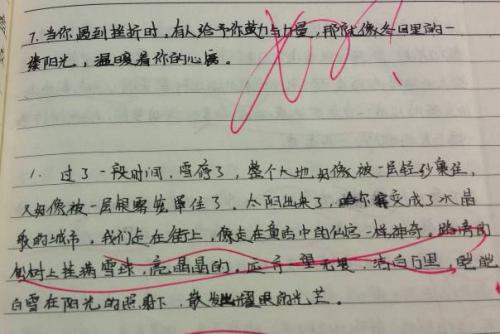 7. 当你遇到挫折时,有人给予你鼓励与力量,那就像冬日里的一
缕阳光,温暖着你的心房。
1. 过了一段时间,雪停了,整个大地好像被一层轻纱裹住,
又好像被一层银雾笼罩住了。太阳出来了,哈尔滨变成了水晶
般的城市,我们走在街上,像走在童话中的仙宫一样神奇。路旁的
树上挂满雪球,亮晶晶的。一望无垠,洁白
白雪在阳光的照射下,散发出耀眼的光芒。